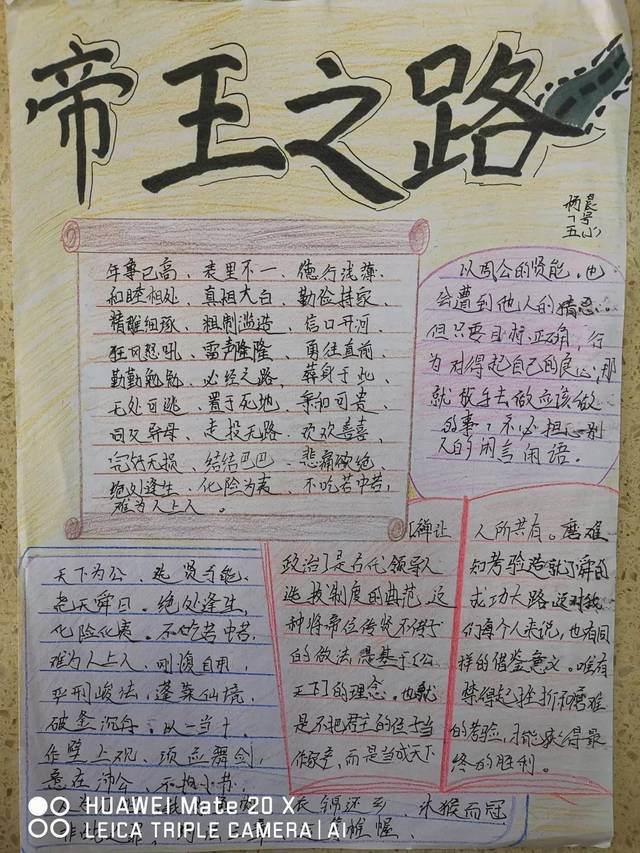 帝王之路
杨晨
7号
五(1)
年事已高、表里不一、德行浅薄、
和睦相处、真相大白、勤俭持家、
精雕细琢、粗制滥造、信口开河、
狂风怒吼、雷声隆隆、勇往直前、
勤勤勉勉、必经之路、葬身于此、
无处可逃、置于死地、亲和可贵、
同父异母、走投无路、欢欢喜喜、
完好无损、结结巴巴、悲痛欲绝、
绝处逢生、化险为夷、不吃苦中苦,
难为人上人。
以周公的贤能,也
会遭到他人的猜忌..
但只要目标正确,行
为对得起自己的良心,那
就放手去做应该做
的事,不必担心别
人的闲言闲语。
天下为公、选贤与能、
尧天舜日、绝处逢生、
化险化夷、不吃苦中苦,
难为人上人、刚愎自用、
严刑峻法、蓬莱仙境、
破釜沉舟、以一当十、
作壁上观、项庄舞剑,
意在沛公、不拘小节、
衣锦还乡、沐猴而冠
帷幄、
[禅让
政治]是古代领导人
选拔制度的典范,这
种将帝位传贤不传子
的做法是基于[公
天下]的理念。也就
是不把君主的位子当
作家产,而是当成天下
人所共有。磨难
和考验造就了舜的
成功大路,这对我
们每个人来说,也有同
样的借鉴意义。唯有
禁得起挫折和磨难
的考验,才能获得最
终的胜利。
HUAWEI Mate 20 X
LEICA TRIPLE CAMERA | AI